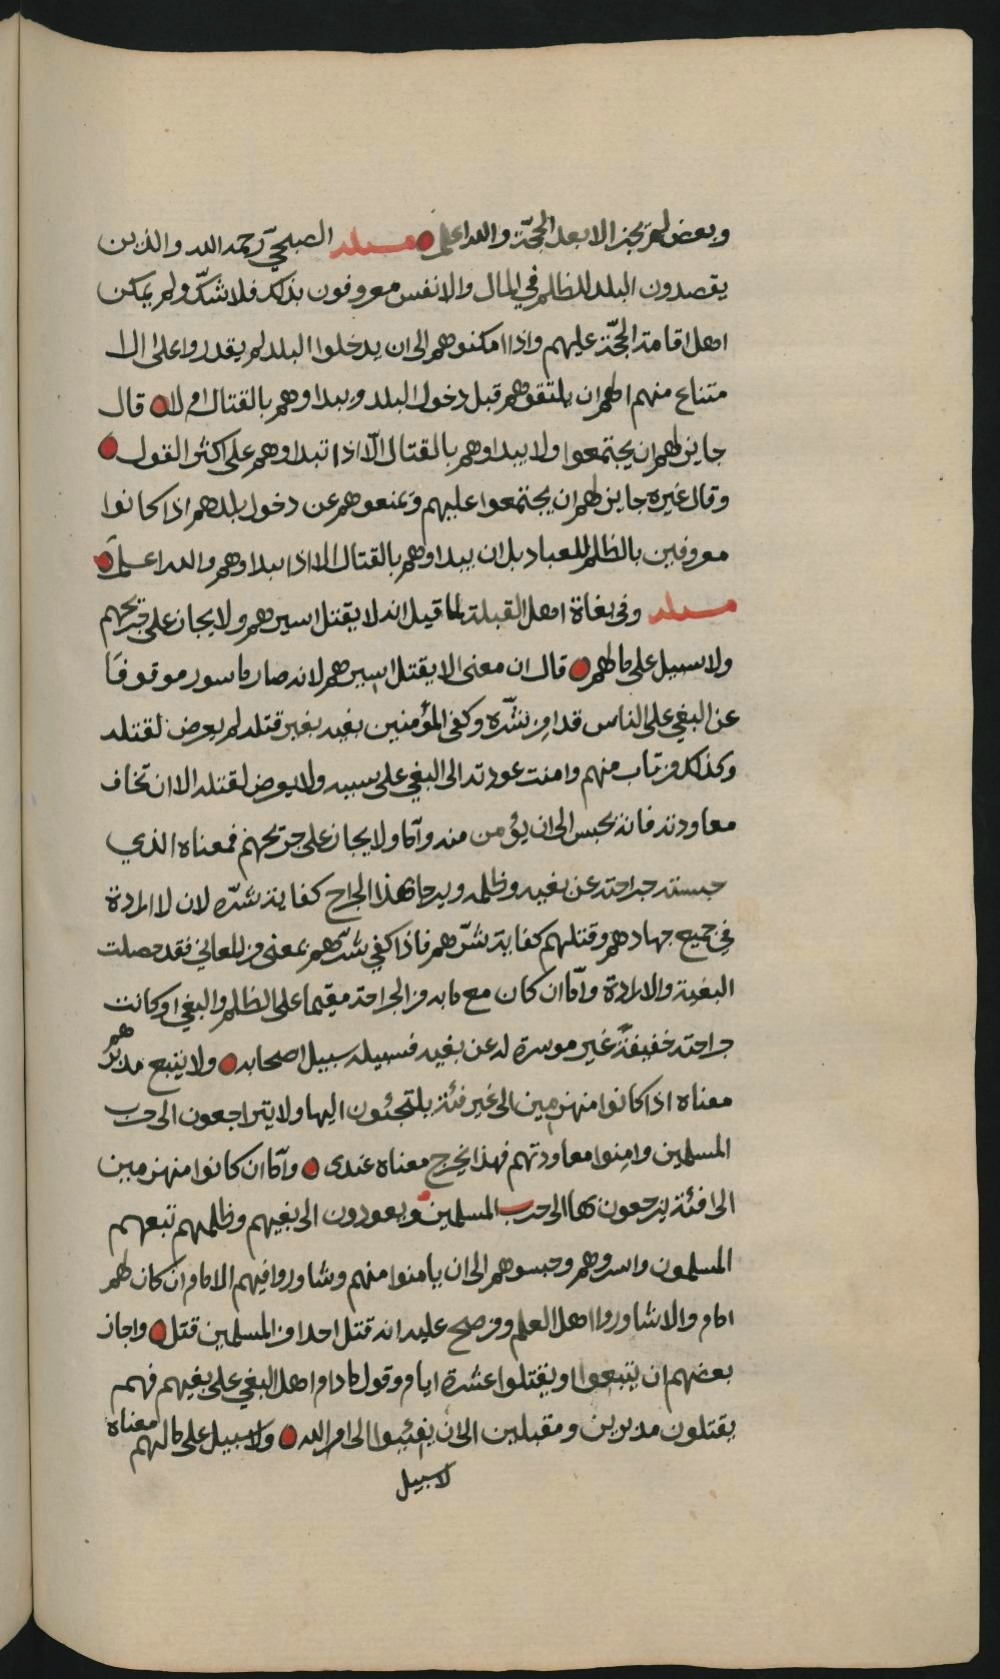 وبعض لم يجز الا بعد الحجّة والله اعلم مسئلة الصبحيّ رحمه الله والذين
يقصدون البلد للظلم في المال والانفس معروفون بذلك فلا شكّ ولم يمكن
اهل اقامة الحجّة عليهم واذا امكنوهم الى ان يدخلوا البلد لم يقدروا على الا
متناع منهم الهم ان يلتقوهم قبل دخول البلد ويبداوهم بالقتال ام لا قال
جايز لهم ان يجتمعوا ولا يبداوهم بالقتال الّا اذا ابتداوهم على اكثر القول
وقال غيره جايز لهم ان يجتمعوا عليهم ويمنعوهم عن دخول بلدهم اذا كانوا
معروفين بالظلم للعباد بل ان يبداوهم بالقتال الا اذا ابداوهم والله اعلم
مسئلة وفي بغاة اهل القبلة لما قيل انه لا يقتل اسيرهم ولا يجاز على جريحهم
ولا سبيل على مالهم قال ان معنى الا يقتل اسيرهم لانه صار ماسور موقوفًا
عن البغي على الناس قد امن شرّه وكفى المؤمنين بغيه بغير قتله لم يعرض لقتله
وكذلك من تاب منهم وامنت عودته الى البغي على سبيه ولا يعرض لقتله الا ان تخاف
معاودته فانه يحبس الى ان يؤمن منه وامّا ولا يجاز على جريحهم فمعناه الذي
حبسته جراحته عن بغيه وظلمه ويرجا بهذا الجراح كفاية شرّه لان الارادة
في جميع جهادهم وقتلهم كفاية شرّهم فاذا كفي شرّهم بمعنى من المعاني فقد حصلت
البغية والارادة وامّا ان كان مع ما به من الجراحة مقيما على الظلم والبغي او كانت
جراحته خفيفةً غير موسرة له عن بغيه فسبيله سبيل اصحابه ولا يتبع مدبرهم
معناه اذا كانوا منهزمين الى غير فئة يلتجئون اليها ولا يتراجعون الى حرب
المسلمين وامنوا معاودتهم فهذا يخرج معناه عندى وامّا ان كانوا منهزمين
الى فئة يرجعون بها الى حرب المسلمين ويعودون الى بغيهم وظلمهم تبعهم
المسلمون واسروهم وحبسوهم الى ان يامنوا منهم وشاوروا فيهم الامام ان كان لهم
امام والا شاوروا اهل العلم ومن صح عليه انه قتل احدا من المسلمين قتل واجاز
بعضهم ان يتبعوا ويقتلوا عشرة ايام وقول ما دام اهل البغي على بغيهم فهم
يقتلون مدبرين ومقبلين الى ان يفيئوا الى امر الله ولا سبيل على مالهم معناه
لا سبيل